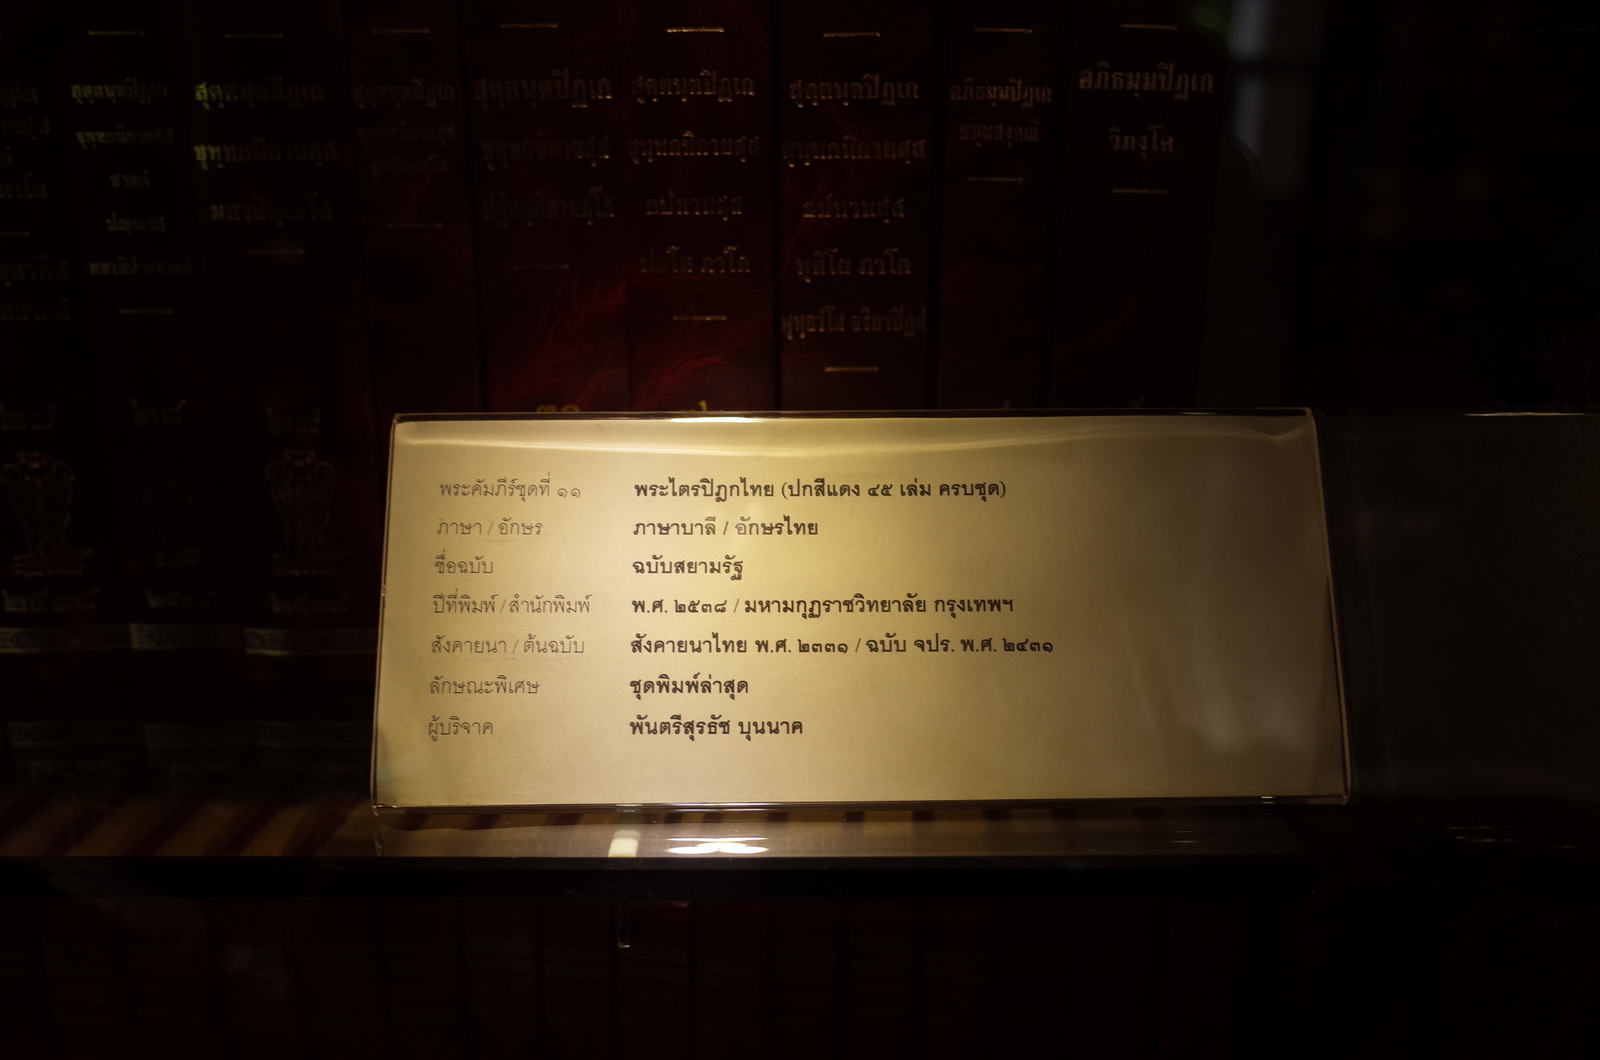 สุตฺตนฺตปิฏเก
สุตฺตนฺตปิฏเก
สุตฺตนฺตปิฏเก
สุตฺตนฺตปิฏเก
สุตฺตนฺตปิฏเก
สุตฺตนฺตปิฏเก
อภิธมฺมปิฏเก
อภิธมฺมปิฏเก
ขุทฺทกนิกายสฺส
ขุทฺทกนิกายสฺส
ขุทฺทกนิกายสฺส
ขุทฺทกนิกายสฺส
ขุทฺทกนิกายสฺส
ธมฺมสงฺคณิ
วิภงฺโค
มหานิทฺเทโส
ปฏิสมฺภิทามคฺโค
อปทานสฺส
อปทานสฺส
ทุติโย ภาโค
พุทฺธวํโส จริยาปิฏกํ
๒๘
พระคัมภีร์ชุดที่ ๑๑ พระไตรปิฎกไทย (ปกสีแดง ๔๕ เล่ม ครบชุด)
ภาษา / อักษร ภาษาบาลี / อักษรไทย
ชื่อฉบับ ฉบับสยามรัฐ
ปีที่พิมพ์ / สำนักพิมพ์ พ.ศ. ๒๕๓๘ / มหามกุฏราชวิทยาลัย กรุงเทพฯ
สังคายนา / ต้นฉบับ สังคายนาไทย พ.ศ. ๒๓๓๑ / ฉบับ จปร. พ.ศ. ๒๔๓๑
ลักษณะพิเศษ ชุดพิมพ์ล่าสุด
ผู้บริจาค พันตรีสุรธัช บุนนาค